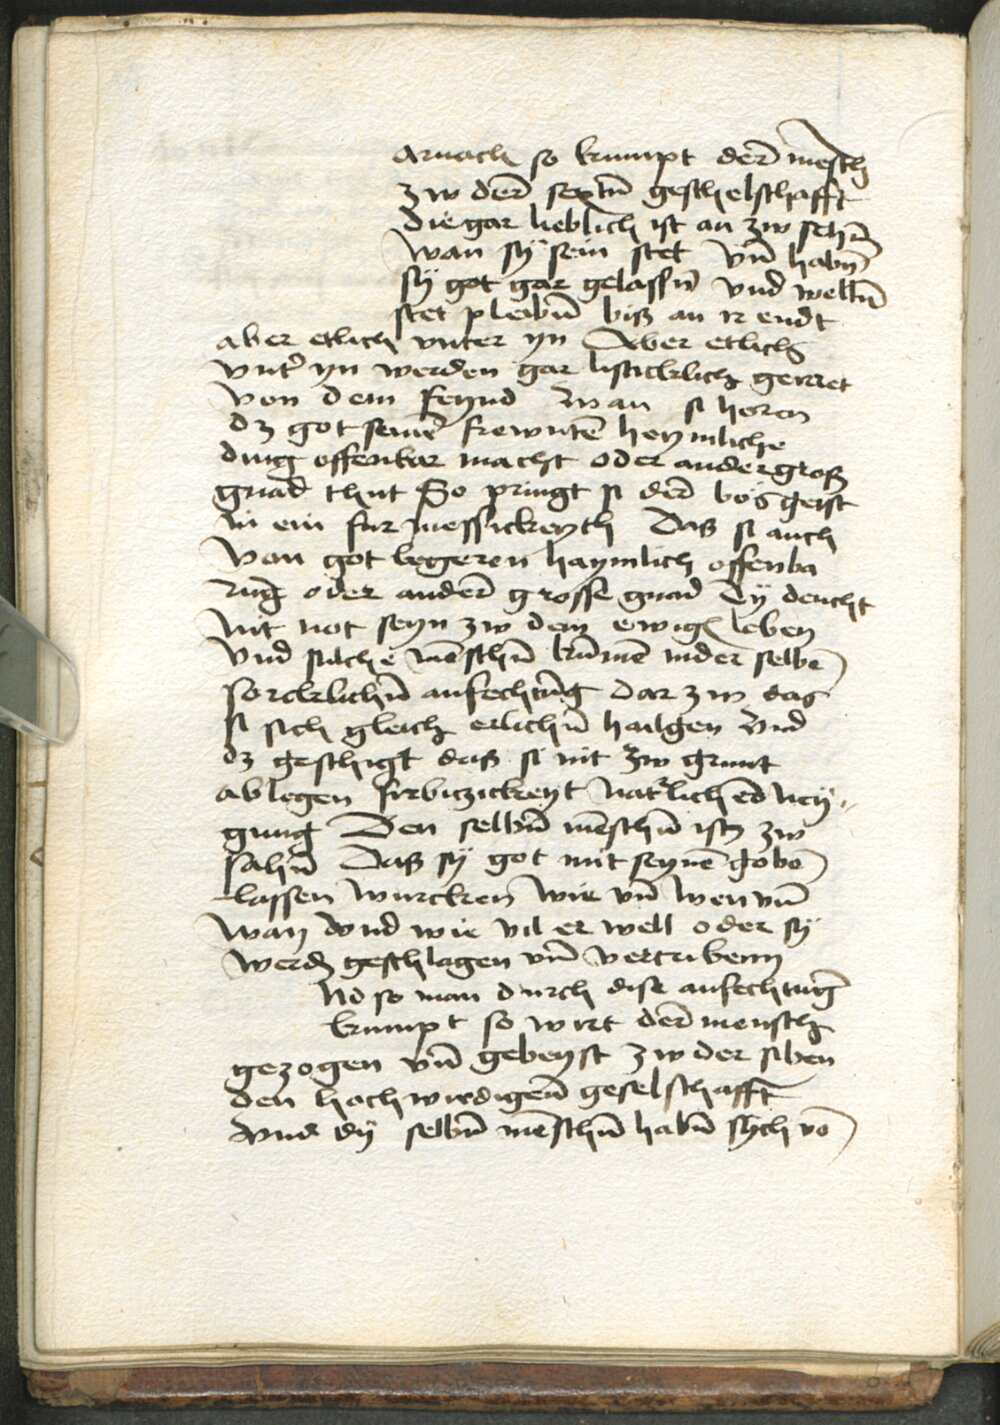 arnach so kumpt der̄ mesch
zw der̄ sextn̄ geschelschafft
die gar lieblich ist an zw sehn̄
wan sÿ sein stet vn̄ habn̄
sÿ got gar gelassn̄ vnd welln̄
stet pleibn̄ biß an ir endt
aber etlich vnter yn Aber etlich
vnt̉ yn werden gar listicklich geirret
von dem feynd wan si horen
dz got seinē frewntē heymliche
ding offenbar macht oder ander groß
gnad thut So pringt si der̄ bös geist
in ein fur messickeyth Daß si auch
von got begeren haymlich offenba
rung oder ander̄ grosse gnad Dÿ deucht
nit not seyn zw dem ewigē leben
vnd sulche mēschn̄ kūmē in der selbē
sorcklichn̄ anfechtūg dar zw das
si sich gleich etlichn̄ hailgen vnd
dz geschigt daß si nit zw grunt
ablegen furbiczickeyt natʳlich ed ney
gung Den selbn̄ mēschn̄ istz zw
sahn̄ Daß sÿ got mit seynē gobē
lassen wurcken wie vn̄ wen vn̄
wan vnd wie vil er well oder sÿ
werdn̄ geschlagen vn̄ vertribenn
Nd so man durch dise anfechtūg
kumpt so wirt der̄ mensch
gezogen vn̄ gebeyst zw der siben
den hochwirdigen̄ geselschafft
vnd dÿ selbn̄ mēschn̄ habn̄ sych vō